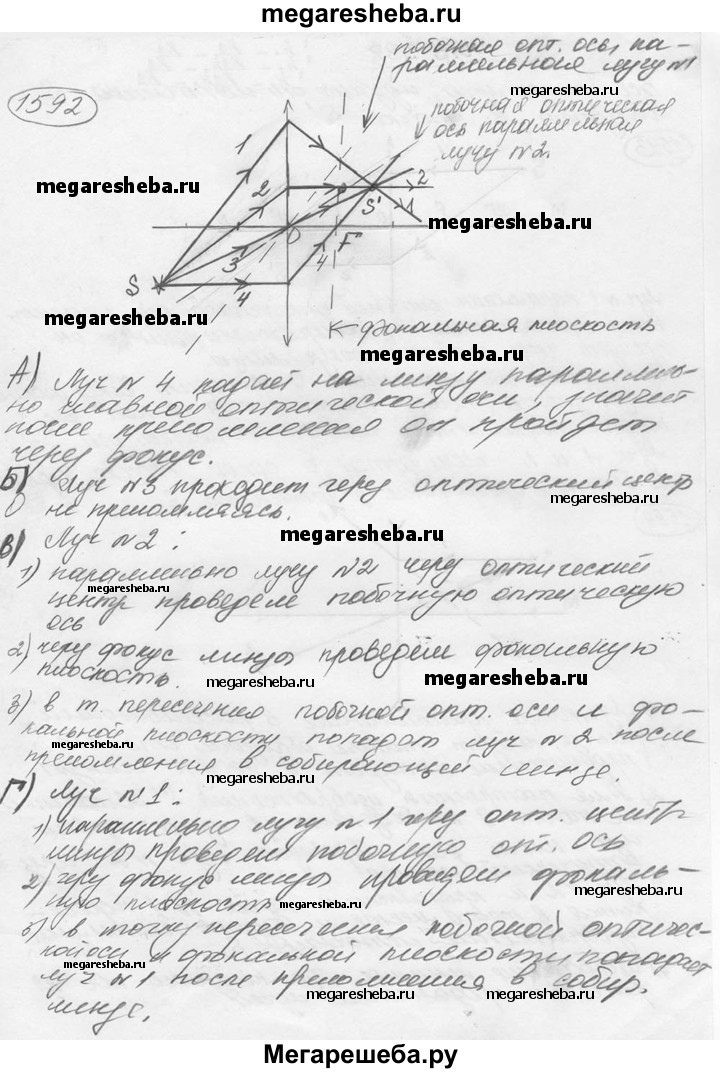 megaresheba.ru
побочная опт. ось, па-
раллельная лучу №1
megaresheba.ru
1592
побочная оптическая
ось параллельная
лучу №2.
1
megaresheba.ru
2
2
S'
1
megaresheba.ru
O
F
3
4
S
4
megaresheba.ru
фокальная плоскость
megaresheba.ru
А) Луч № 4 падает на линзу параллель-
но главной оптической оси, значит
после преломления он пройдет
через фокус.
Б) Луч №3 проходит через оптический центр
megaresheba.ru
О не преломляясь.
megaresheba.ru
В) Луч №2:
1) параллельно лучу №2 через оптический
megaresheba.ru
центр проведем побочную оптическую
ось
megaresheba.ru
2) через фокус линзы проведём фокальную
плоскость.
megaresheba.ru
megaresheba.ru
3) в т. пересечения побочной опт. оси и фо-
кальной плоскости попадает луч №2 после
megaresheba.ru
преломления в собирающей линзе.
megaresheba.ru
Г) Луч №1:
megaresheba.ru
1) параллельно лучу №1 через опт. центр
линзы проведем побочную опт. ось
2) через фокус линзы проведем фокаль-
megaresheba.ru
ную плоскость
megaresheba.ru
3) в точку пересечения побочной оптичес-
кой оси и фокальной плоскости попадает
megaresheba.ru
луч №1 после преломления в собир.
megaresheba.ru
megaresheba.ru
линзе.
Мегарешеба.ру